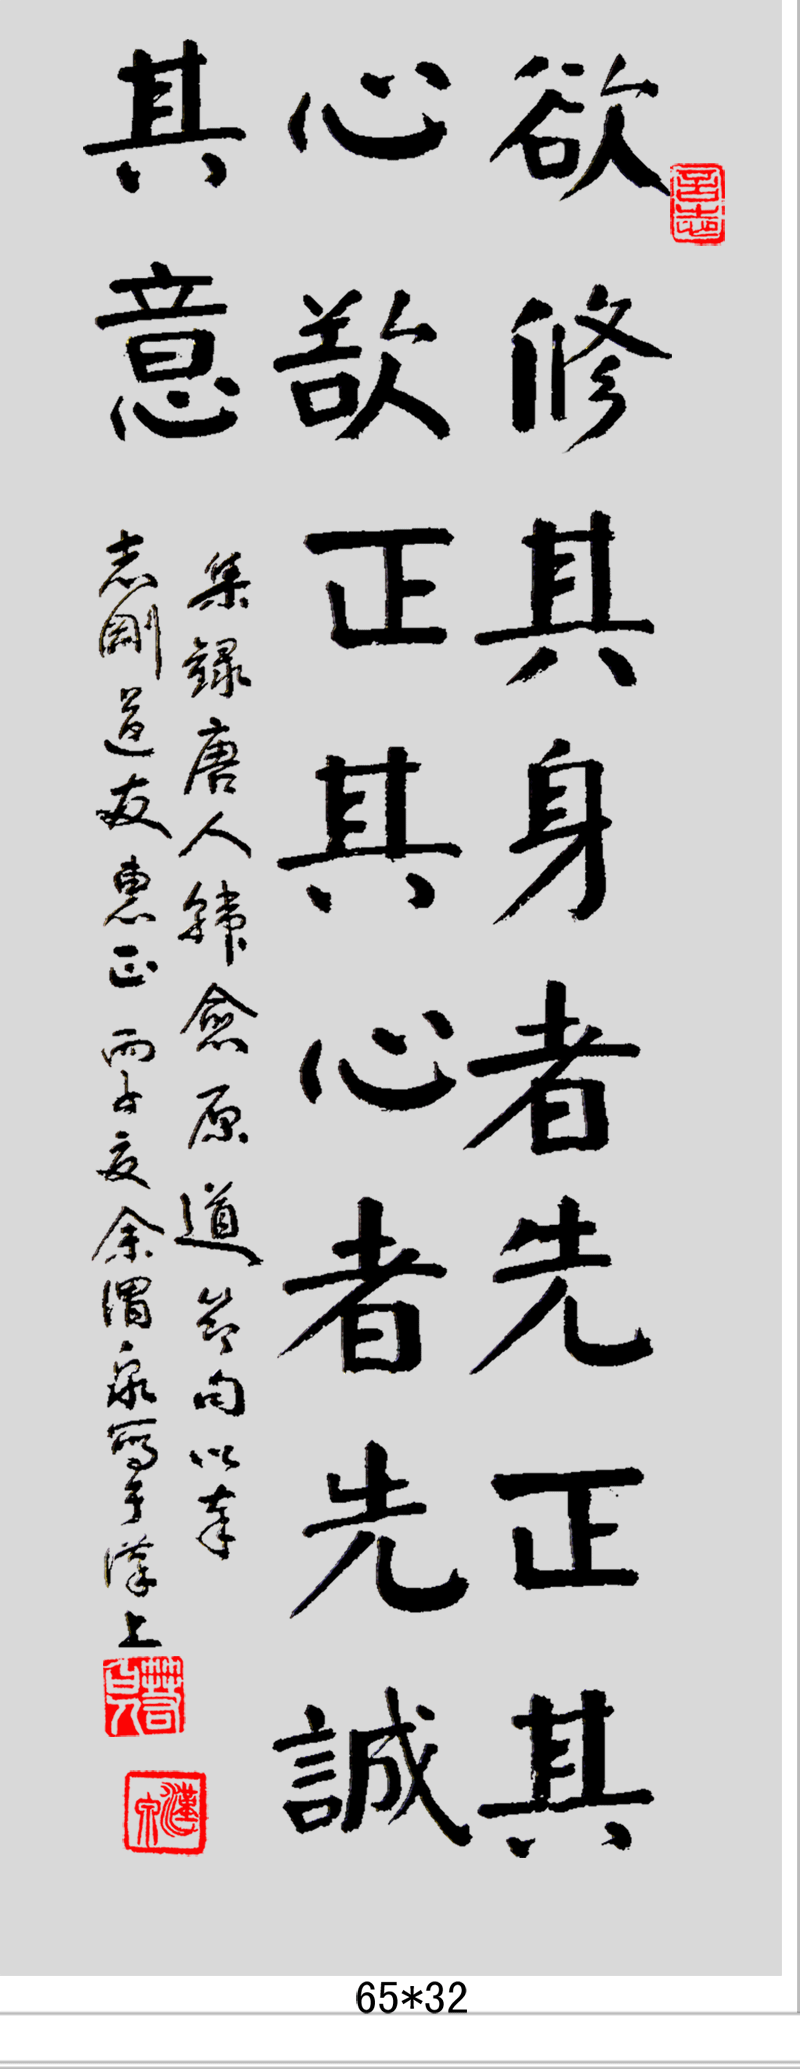 欲修其身者先正其
心欲正其心者先誠
其意
集錄唐人韓愈原道節句以奉
志剛道友惠正 丙子夏余渭泉寫于漢上
65*32